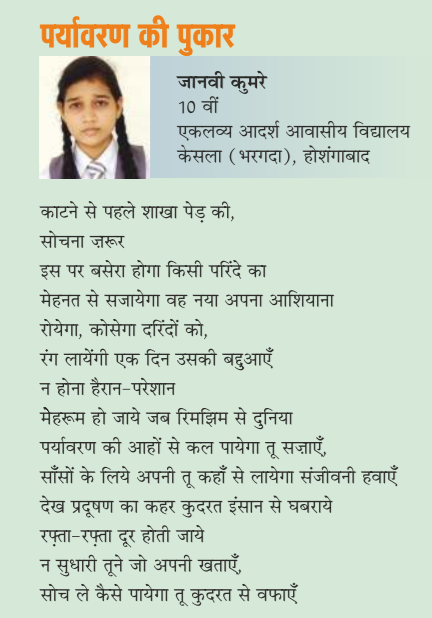 पर्यावरण की पुकार
जानवी कुमरे
10 वीं
एकलव्य आदर्श आवासीय विद्यालय
केसला (भरगदा), होशंगाबाद
काटने से पहले शाखा पेड़ की,
सोचना ज़रूर
इस पर बसेरा होगा किसी परिंदे का
मेहनत से सजायेगा वह नया अपना आशियाना
रोयेगा, कोसेगा दरिंदों को,
रंग लायेंगी एक दिन उसकी बद्दुआएँ
न होना हैरान-परेशान
मेहरूम हो जाये जब रिमझिम से दुनिया
पर्यावरण की आहों से कल पायेगा तू सजाएँ,
साँसों के लिये अपनी तू कहाँ से लायेगा संजीवनी हवाएँ
देख प्रदूषण का कहर कुदरत इंसान से घबराये
रफ़्ता-रफ़्ता दूर होती जाये
न सुधारी तूने जो अपनी खताएँ,
सोच ले कैसे पायेगा तू कुदरत से वफाएँ